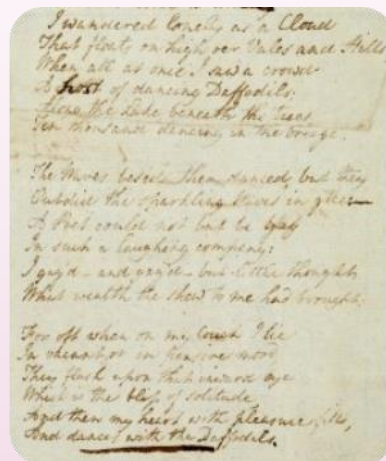 I wandered lonely as a Cloud
That floats on high o'er Vales and Hills
When all at once I saw a crowd
A host of dancing Daffodils;
Along the Lake beneath the trees
Ten thousand dancing in the breeze.
The Waves beside them danced, but they
Outdid the sparkling Waves in glee—
A Poet could not but be gay
In such a laughing company:
I gaz'd – and gaz'd – but little thought
What wealth the shew to me had brought:
For oft when on my couch I lie
In vacant, or in pensive mood
They flash upon that inward eye
Which is the bliss of solitude
And then my heart with pleasure fills,
And dances with the Daffodils.